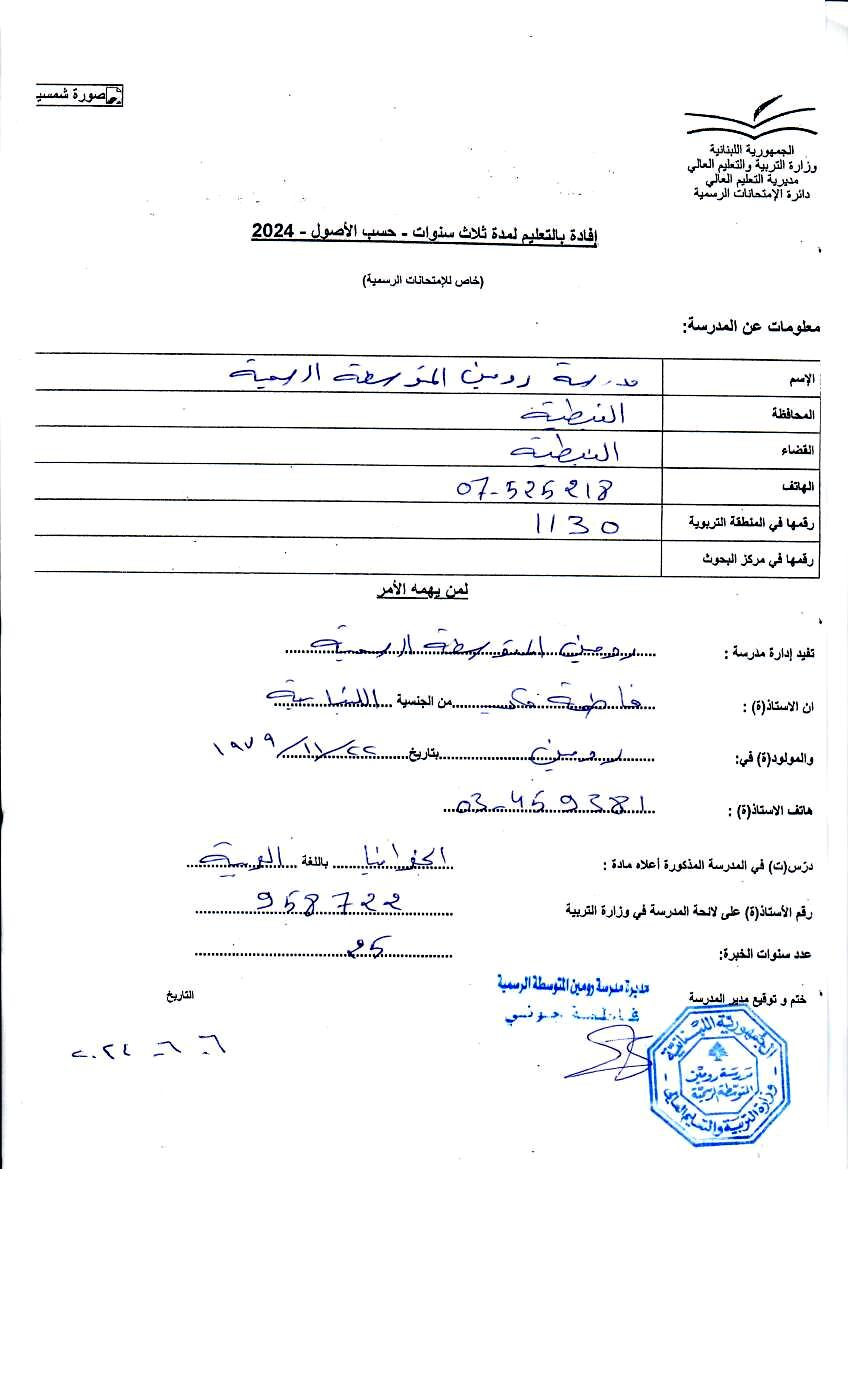 صورة شمسي
الجمهورية اللبنانية
وزارة التربية والتعليم العالي
مديرية التعليم العالي
دائرة الإمتحانات الرسمية
إفادة بالتعليم لمدة ثلاث سنوات - حسب الأصول - 2024
(خاص للإمتحانات الرسمية)
معلومات عن المدرسة:
الإسم مدرسة رومين المتوسطة الرسمية
المحافظة النبطية
القضاء النبطية
الهاتف 07-525218
رقمها في المنطقة التربوية 1130
رقمها في مركز البحوث
لمن يهمه الأمر
تفيد إدارة مدرسة : رومين المتوسطة الرسمية
ان الاستاذ(ة) : فاطمة من الجنسية اللبنانية
والمولود(ة) في: رومين بتاريخ ٢٢/١١/١٩٧٩
هاتف الاستاذ(ة) : 03-459381
درّس(ت) في المدرسة المذكورة أعلاه مادة : الجغرافيا باللغة العربية
رقم الأستاذ(ة) على لائحة المدرسة في وزارة التربية 958722
عدد سنوات الخبرة: 25
ختم و توقيع مدير المدرسة التاريخ
مديرة مدرسة رومين المتوسطة الرسمية
فاطمة جوني
٦-٦-٢٠٢٤
الجمهورية اللبنانية
مدرسة رومين
المتوسطة الرسمية
وزارة التربية والتعليم العالي